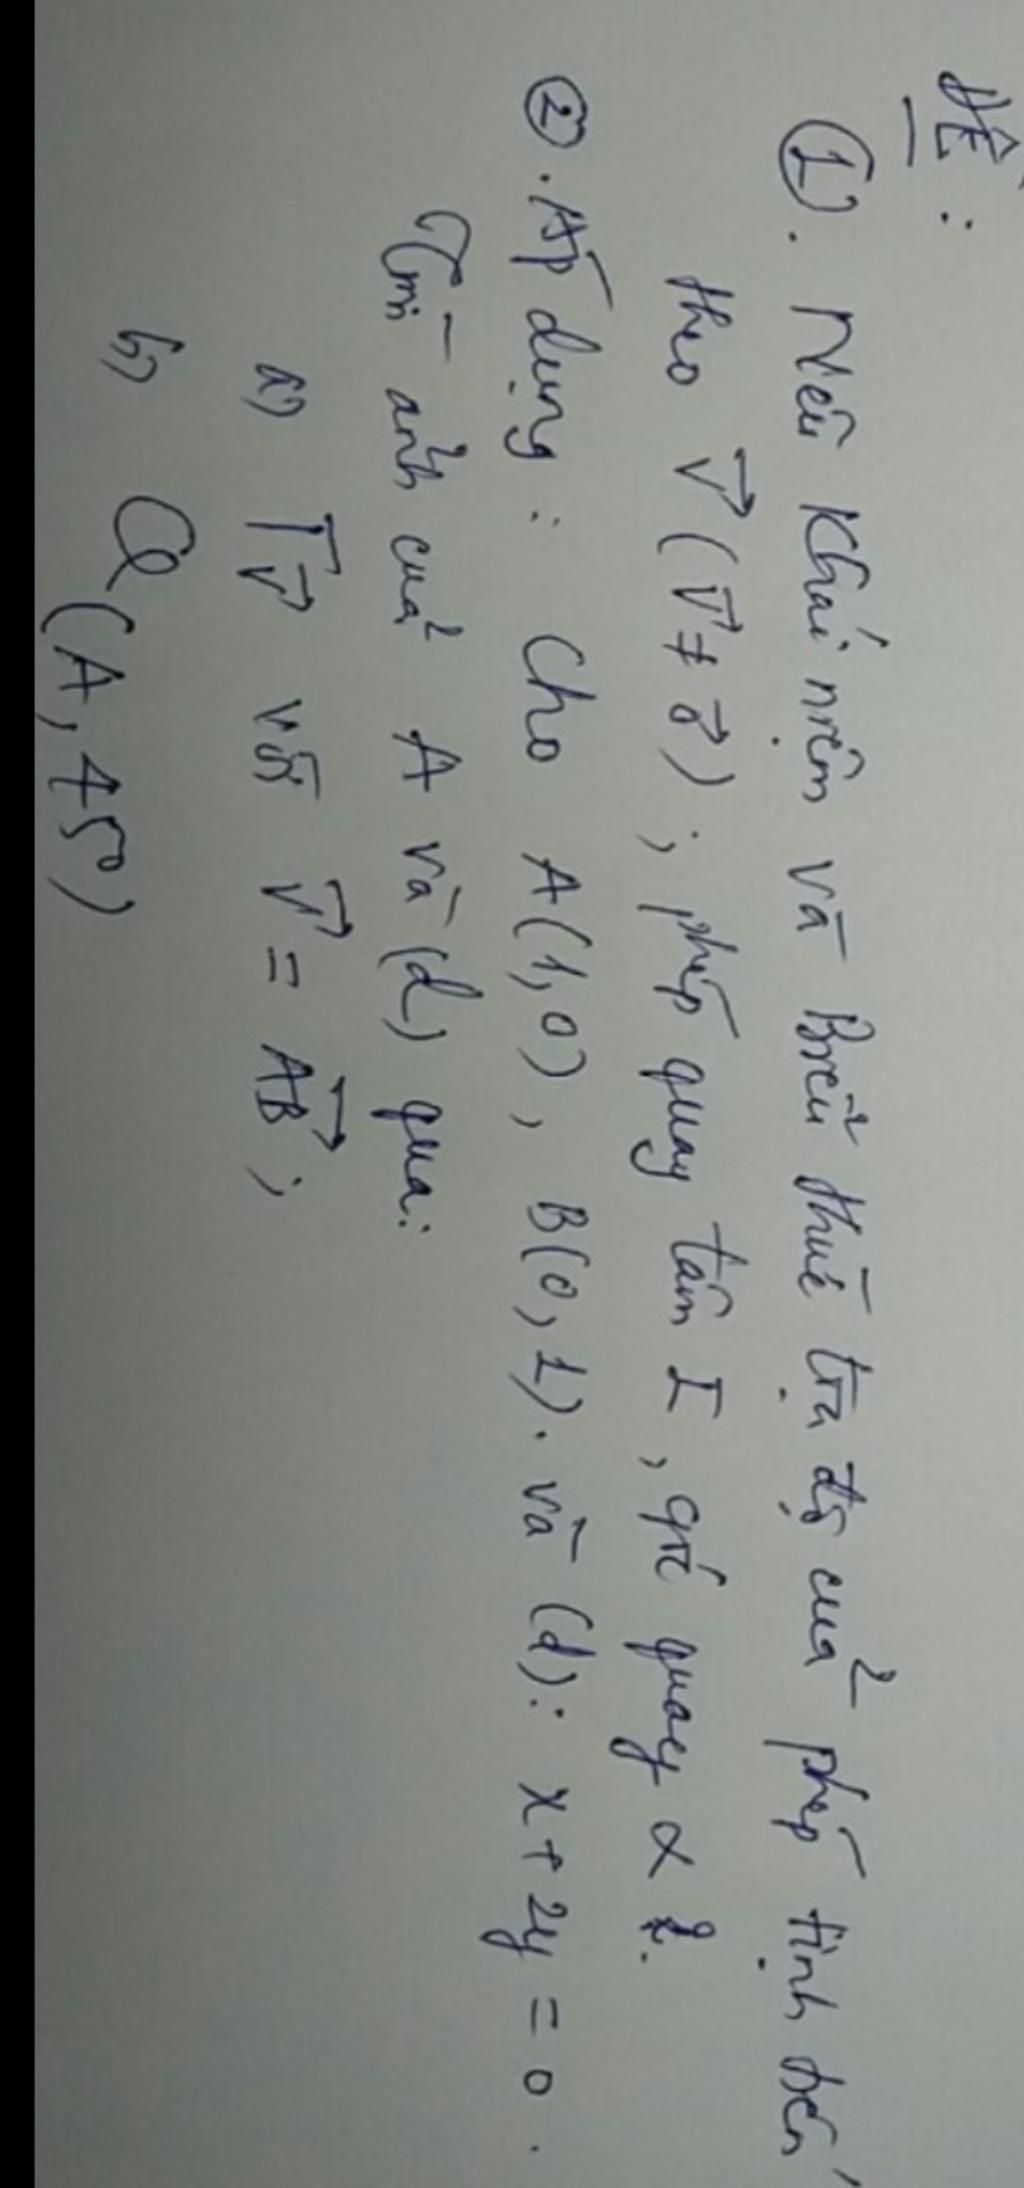 ĐỀ:
①. Nêu khái niệm và Biểu thức tọa độ của phép tịnh tiến
theo v⃗ (v⃗ ≠ 0⃗) ; phép quay tâm I, góc quay α
②. Áp dụng : Cho A(1,0), B(0,1). và (d): x + 2y = 0.
Tìm ảnh của A và (d) qua:
a) T v⃗ với v⃗ = AB⃗ ;
b) Q(A, 45°)